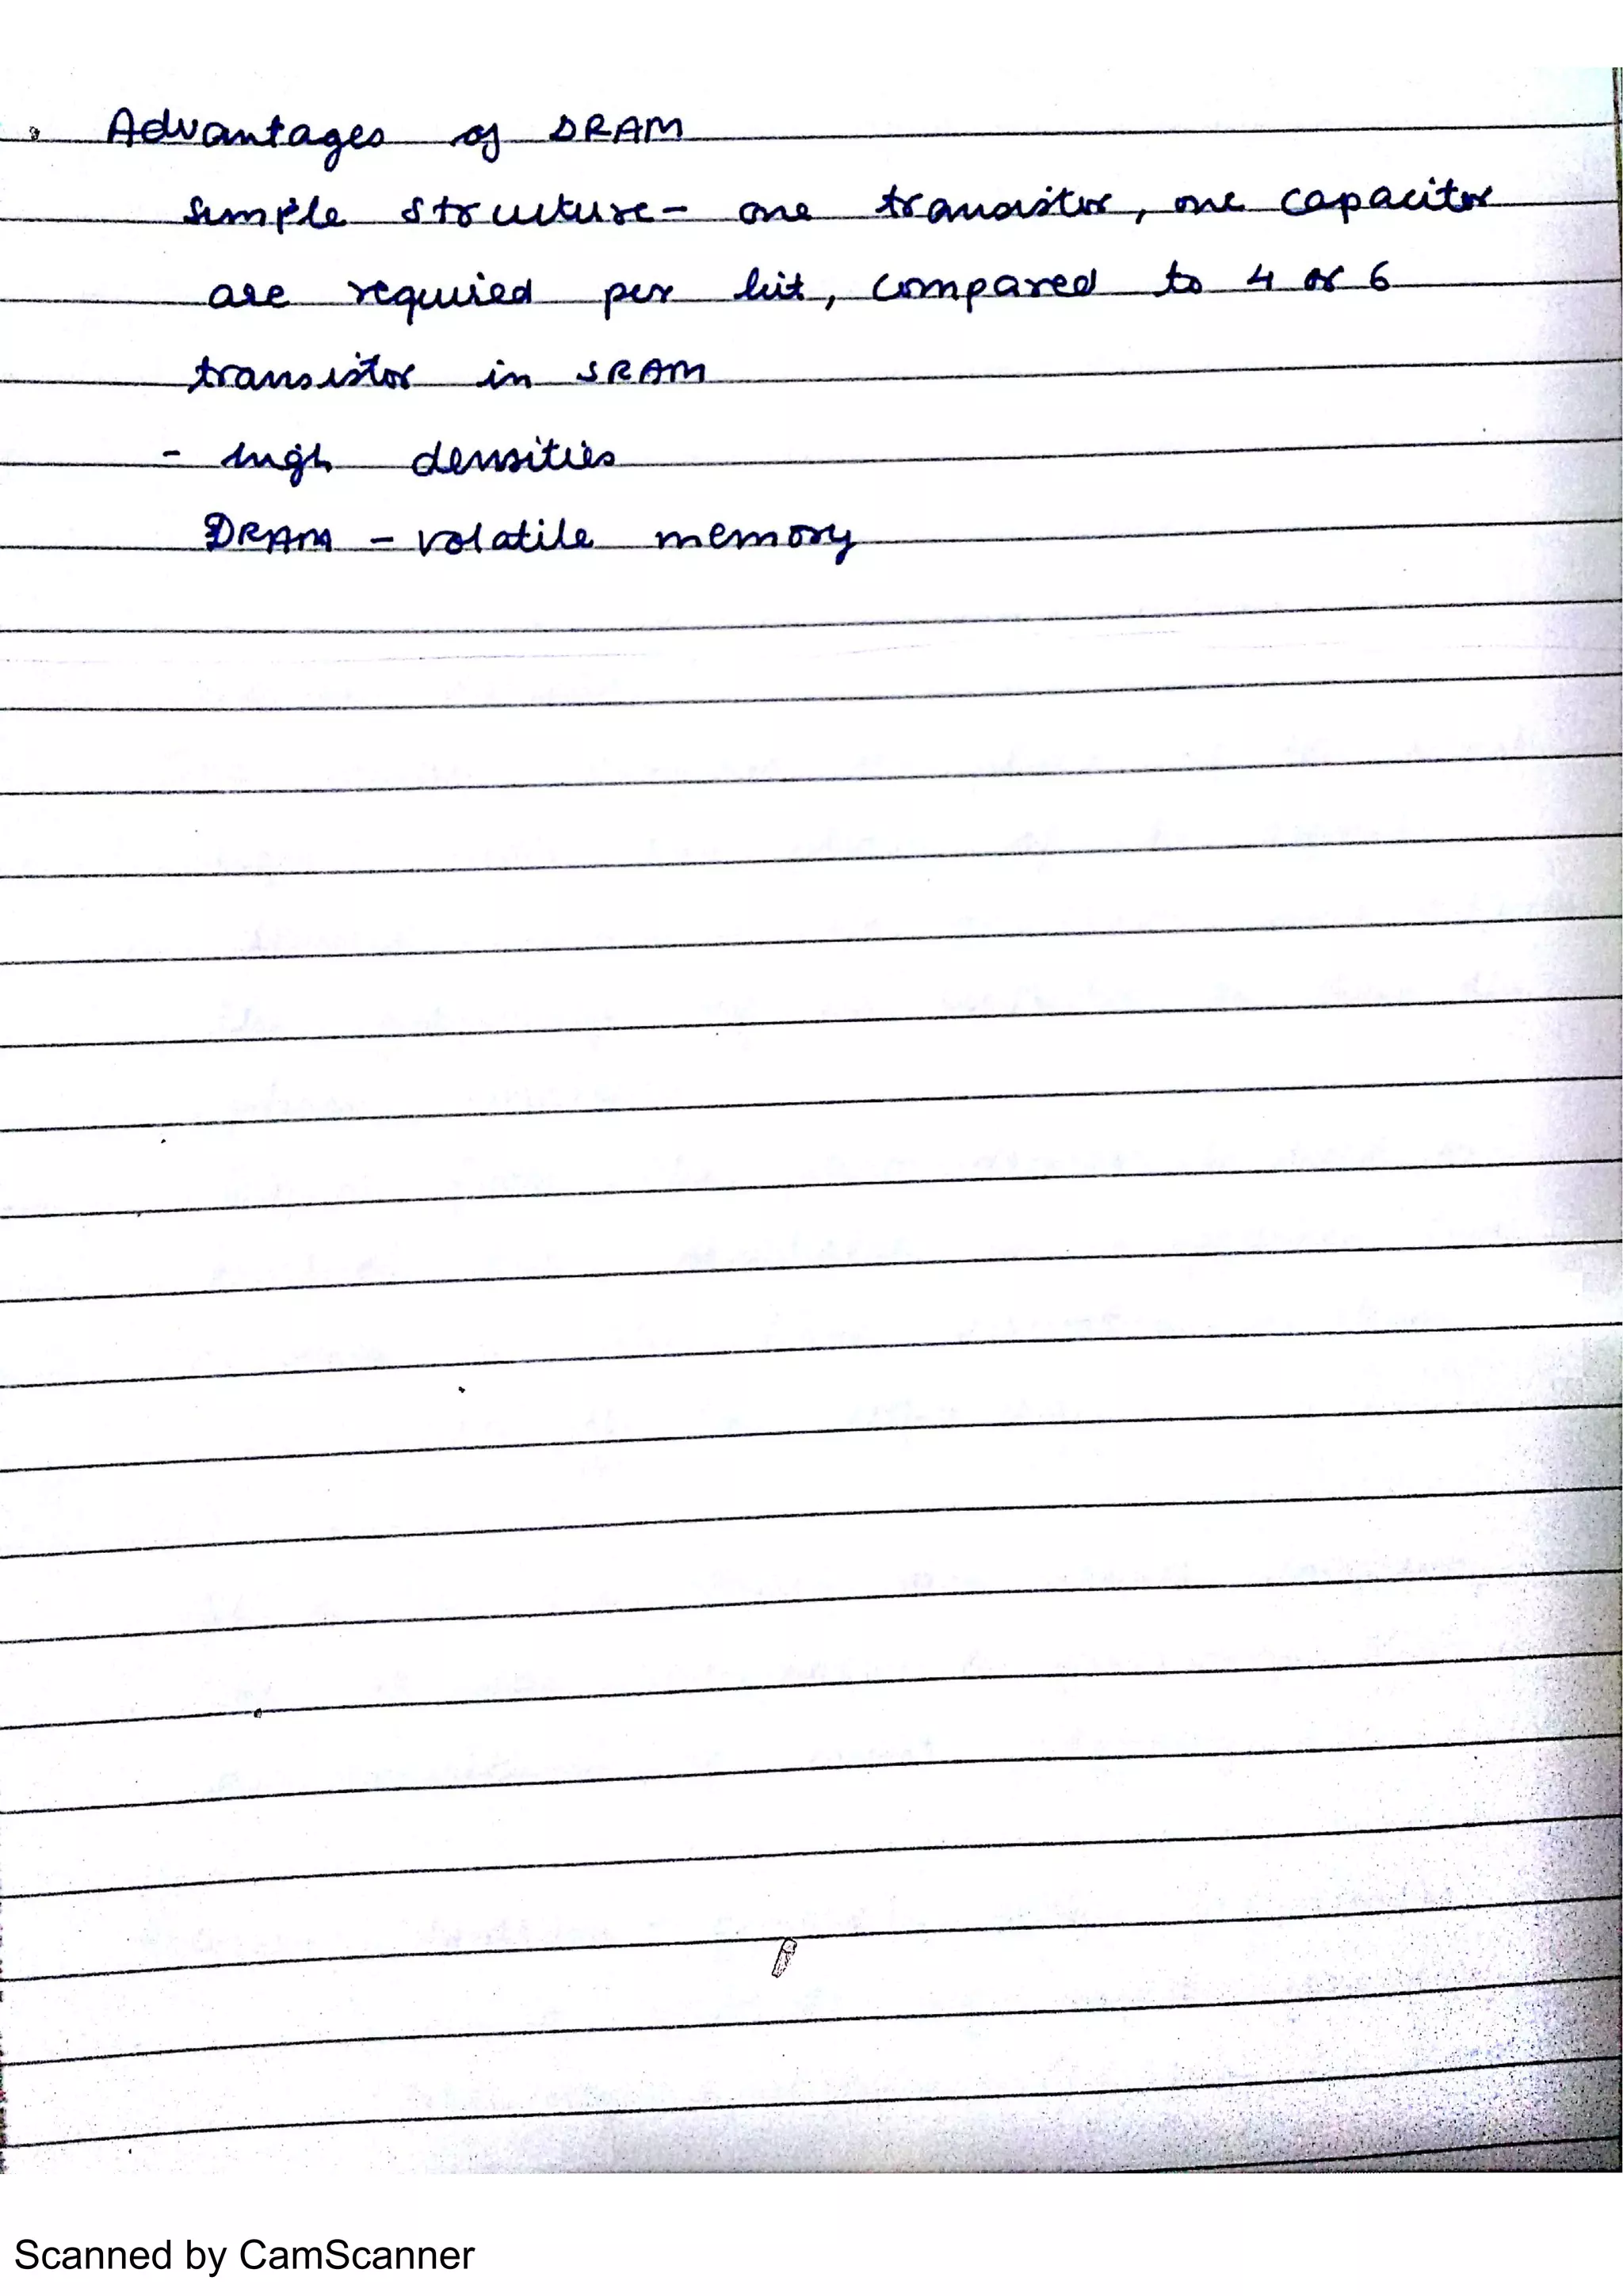 Advantages of DRAM
Simple structure - one transistor, one capacitor
are required per bit, compared to 4 or 6
transistor in SRAM
- high densities
DRAM - volatile memory
Scanned by CamScanner